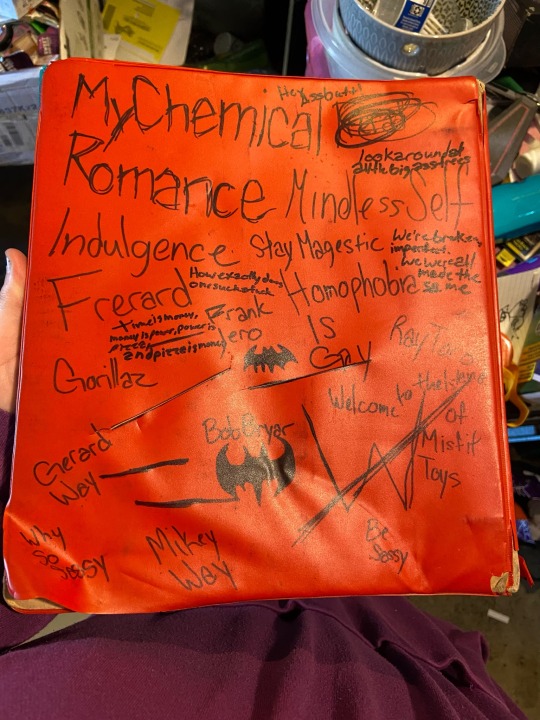 Hey assbutt!
My Chemical
Romance
look around at
all the big ass trees
Mindless Self
Indulgence
Stay Magestic
We're broken,
imperfect.
We were all
made the
same
Frerard
How exactly does
one suck a fuck
Homophobia
Is
Gay
Time is money,
money is power, power is
pizza
and pizza is money
Frank
Iero
Ray Toro
Gorillaz
Welcome to the
of
Misfit
Toys
Gerard
Way
Bob Bryar
Why
So
Sassy
Mikey
Way
Be
Sassy